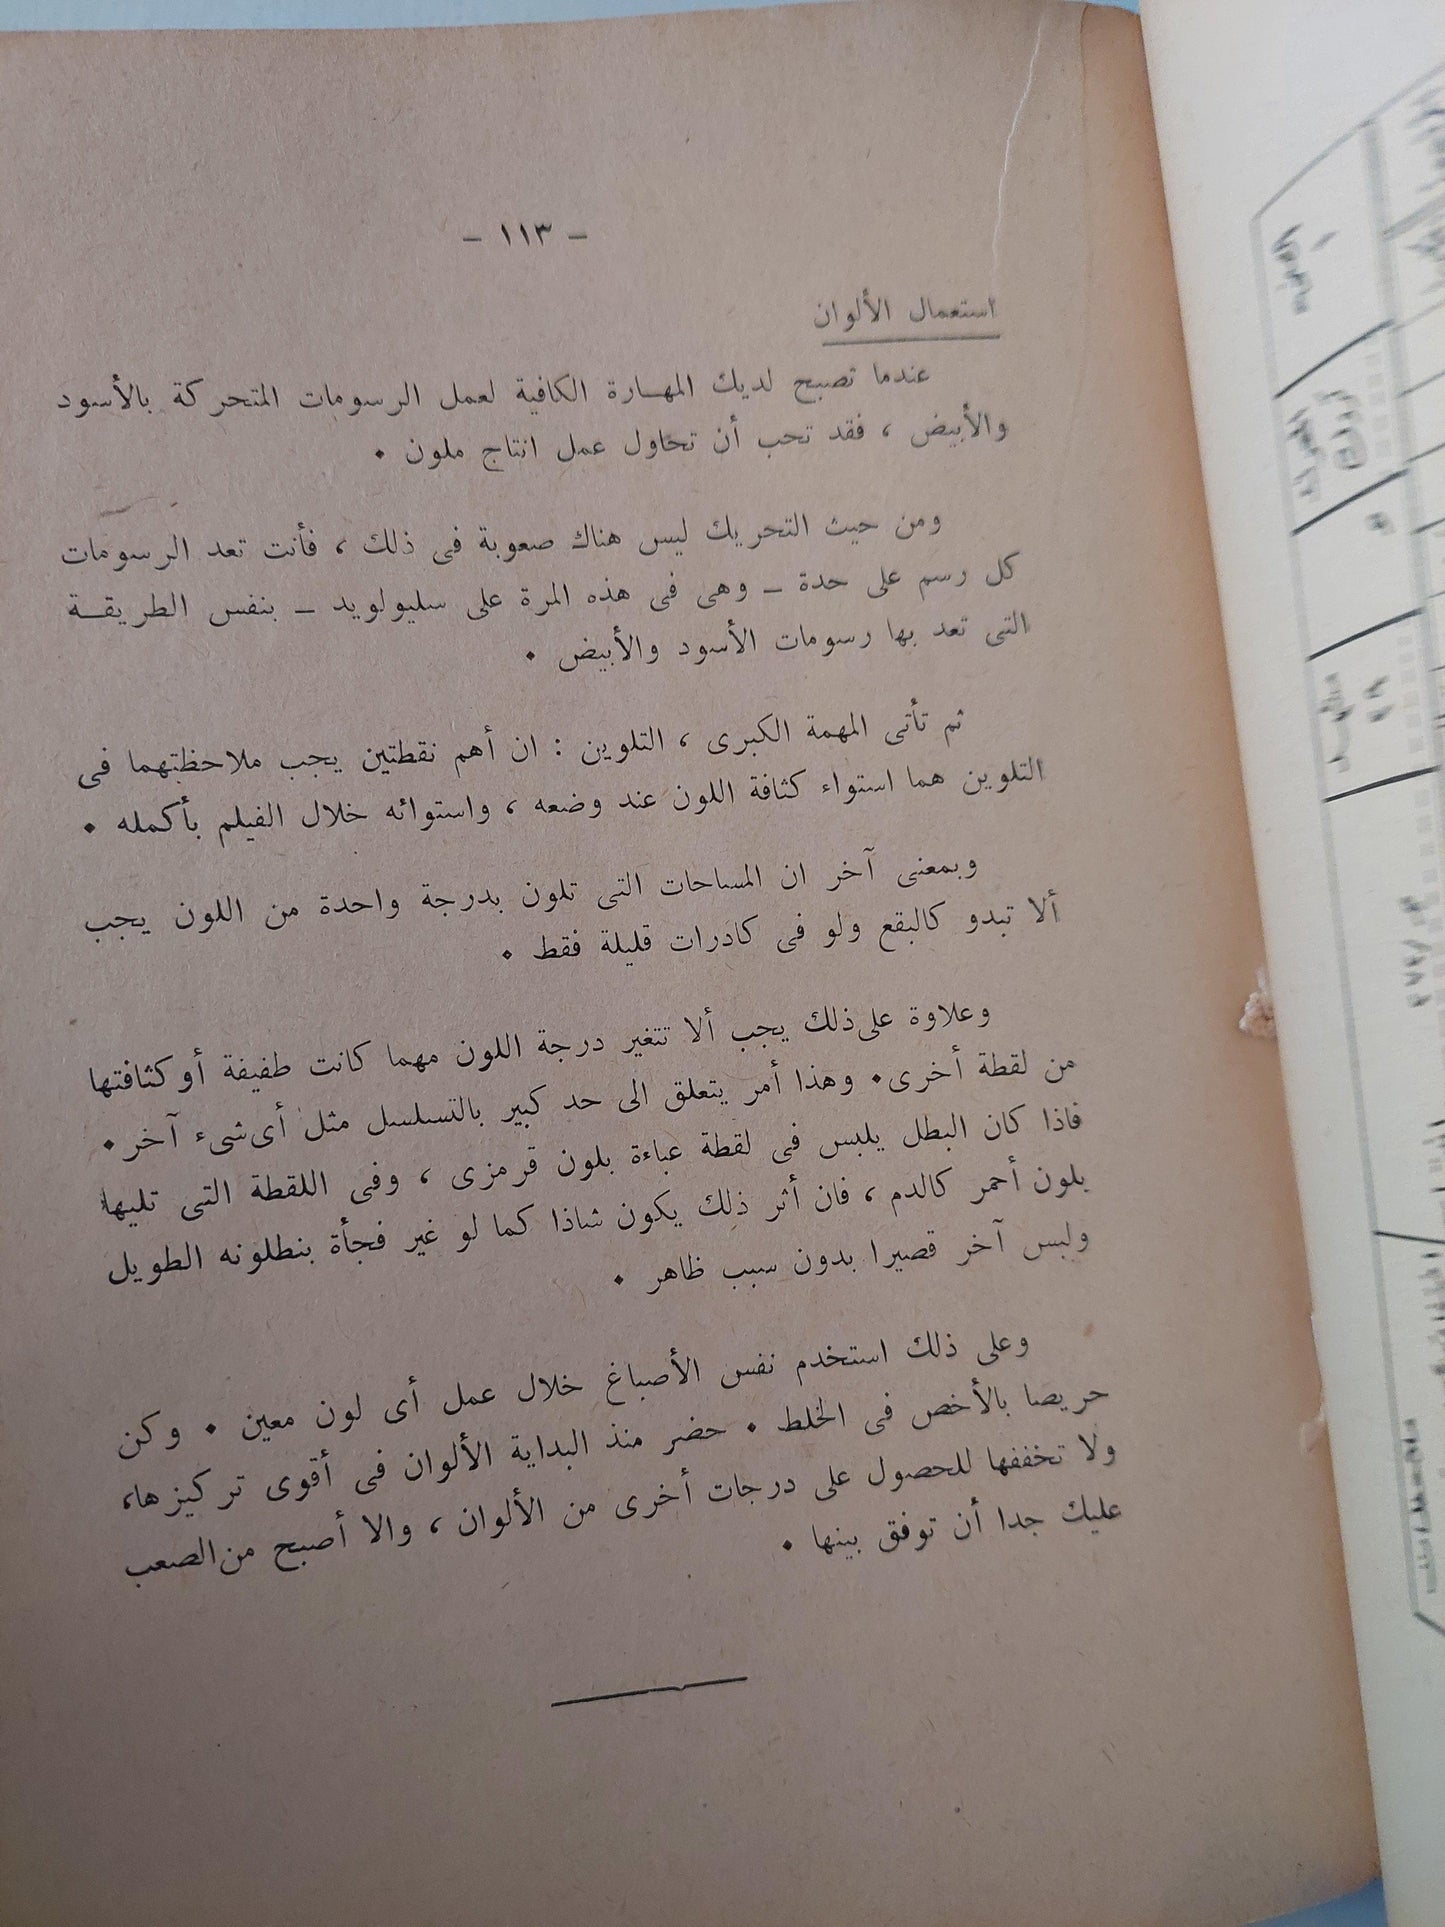 - ١١٣ -
استعمال الألوان
عندما تصبح لديك المهارة الكافية لعمل الرسومات المتحركة بالأسود
والأبيض ، فقد تحب أن تحاول عمل انتاج ملون .
ومن حيث التحريك ليس هناك صعوبة فى ذلك ، فأنت تعد الرسومات
كل رسم على حدة ــ وهى فى هذه المرة على سليولويد ــ بنفس الطريقة
التى تعد بها رسومات الأسود والأبيض .
ثم تأتى المهمة الكبرى ، التلوين : ان أهم نقطتين يجب ملاحظتهما فى
التلوين هما استواء كثافة اللون عند وضعه ، واستوائه خلال الفيلم بأكمله .
وبمعنى آخر ان المساحات التى تلون بدرجة واحدة من اللون يجب
ألا تبدو كالبقع ولو فى كادرات قليلة فقط .
وعلاوة على ذلك يجب ألا تتغير درجة اللون مهما كانت طفيفة أو كثافتها
من لقطة أخرى . وهذا أمر يتعلق الى حد كبير بالتسلسل مثل أى شىء آخر .
فاذا كان البطل يلبس فى لقطة عباءة بلون قرمزى ، وفى اللقطة التى تليها
بلون أحمر كالدم ، فان أثر ذلك يكون شاذا كما لو غير فجأة بنطلونه الطويل
ولبس آخر قصيرا بدون سبب ظاهر .
وعلى ذلك استخدم نفس الأصباغ خلال عمل أى لون معين . وكن
حريصا بالأخص فى الخلط . حضر منذ البداية الألوان فى أقوى تركيزها،
ولا تخففها للحصول على درجات أخرى من الألوان ، والا أصبح من الصعب
عليك جدا أن توفق بينها .